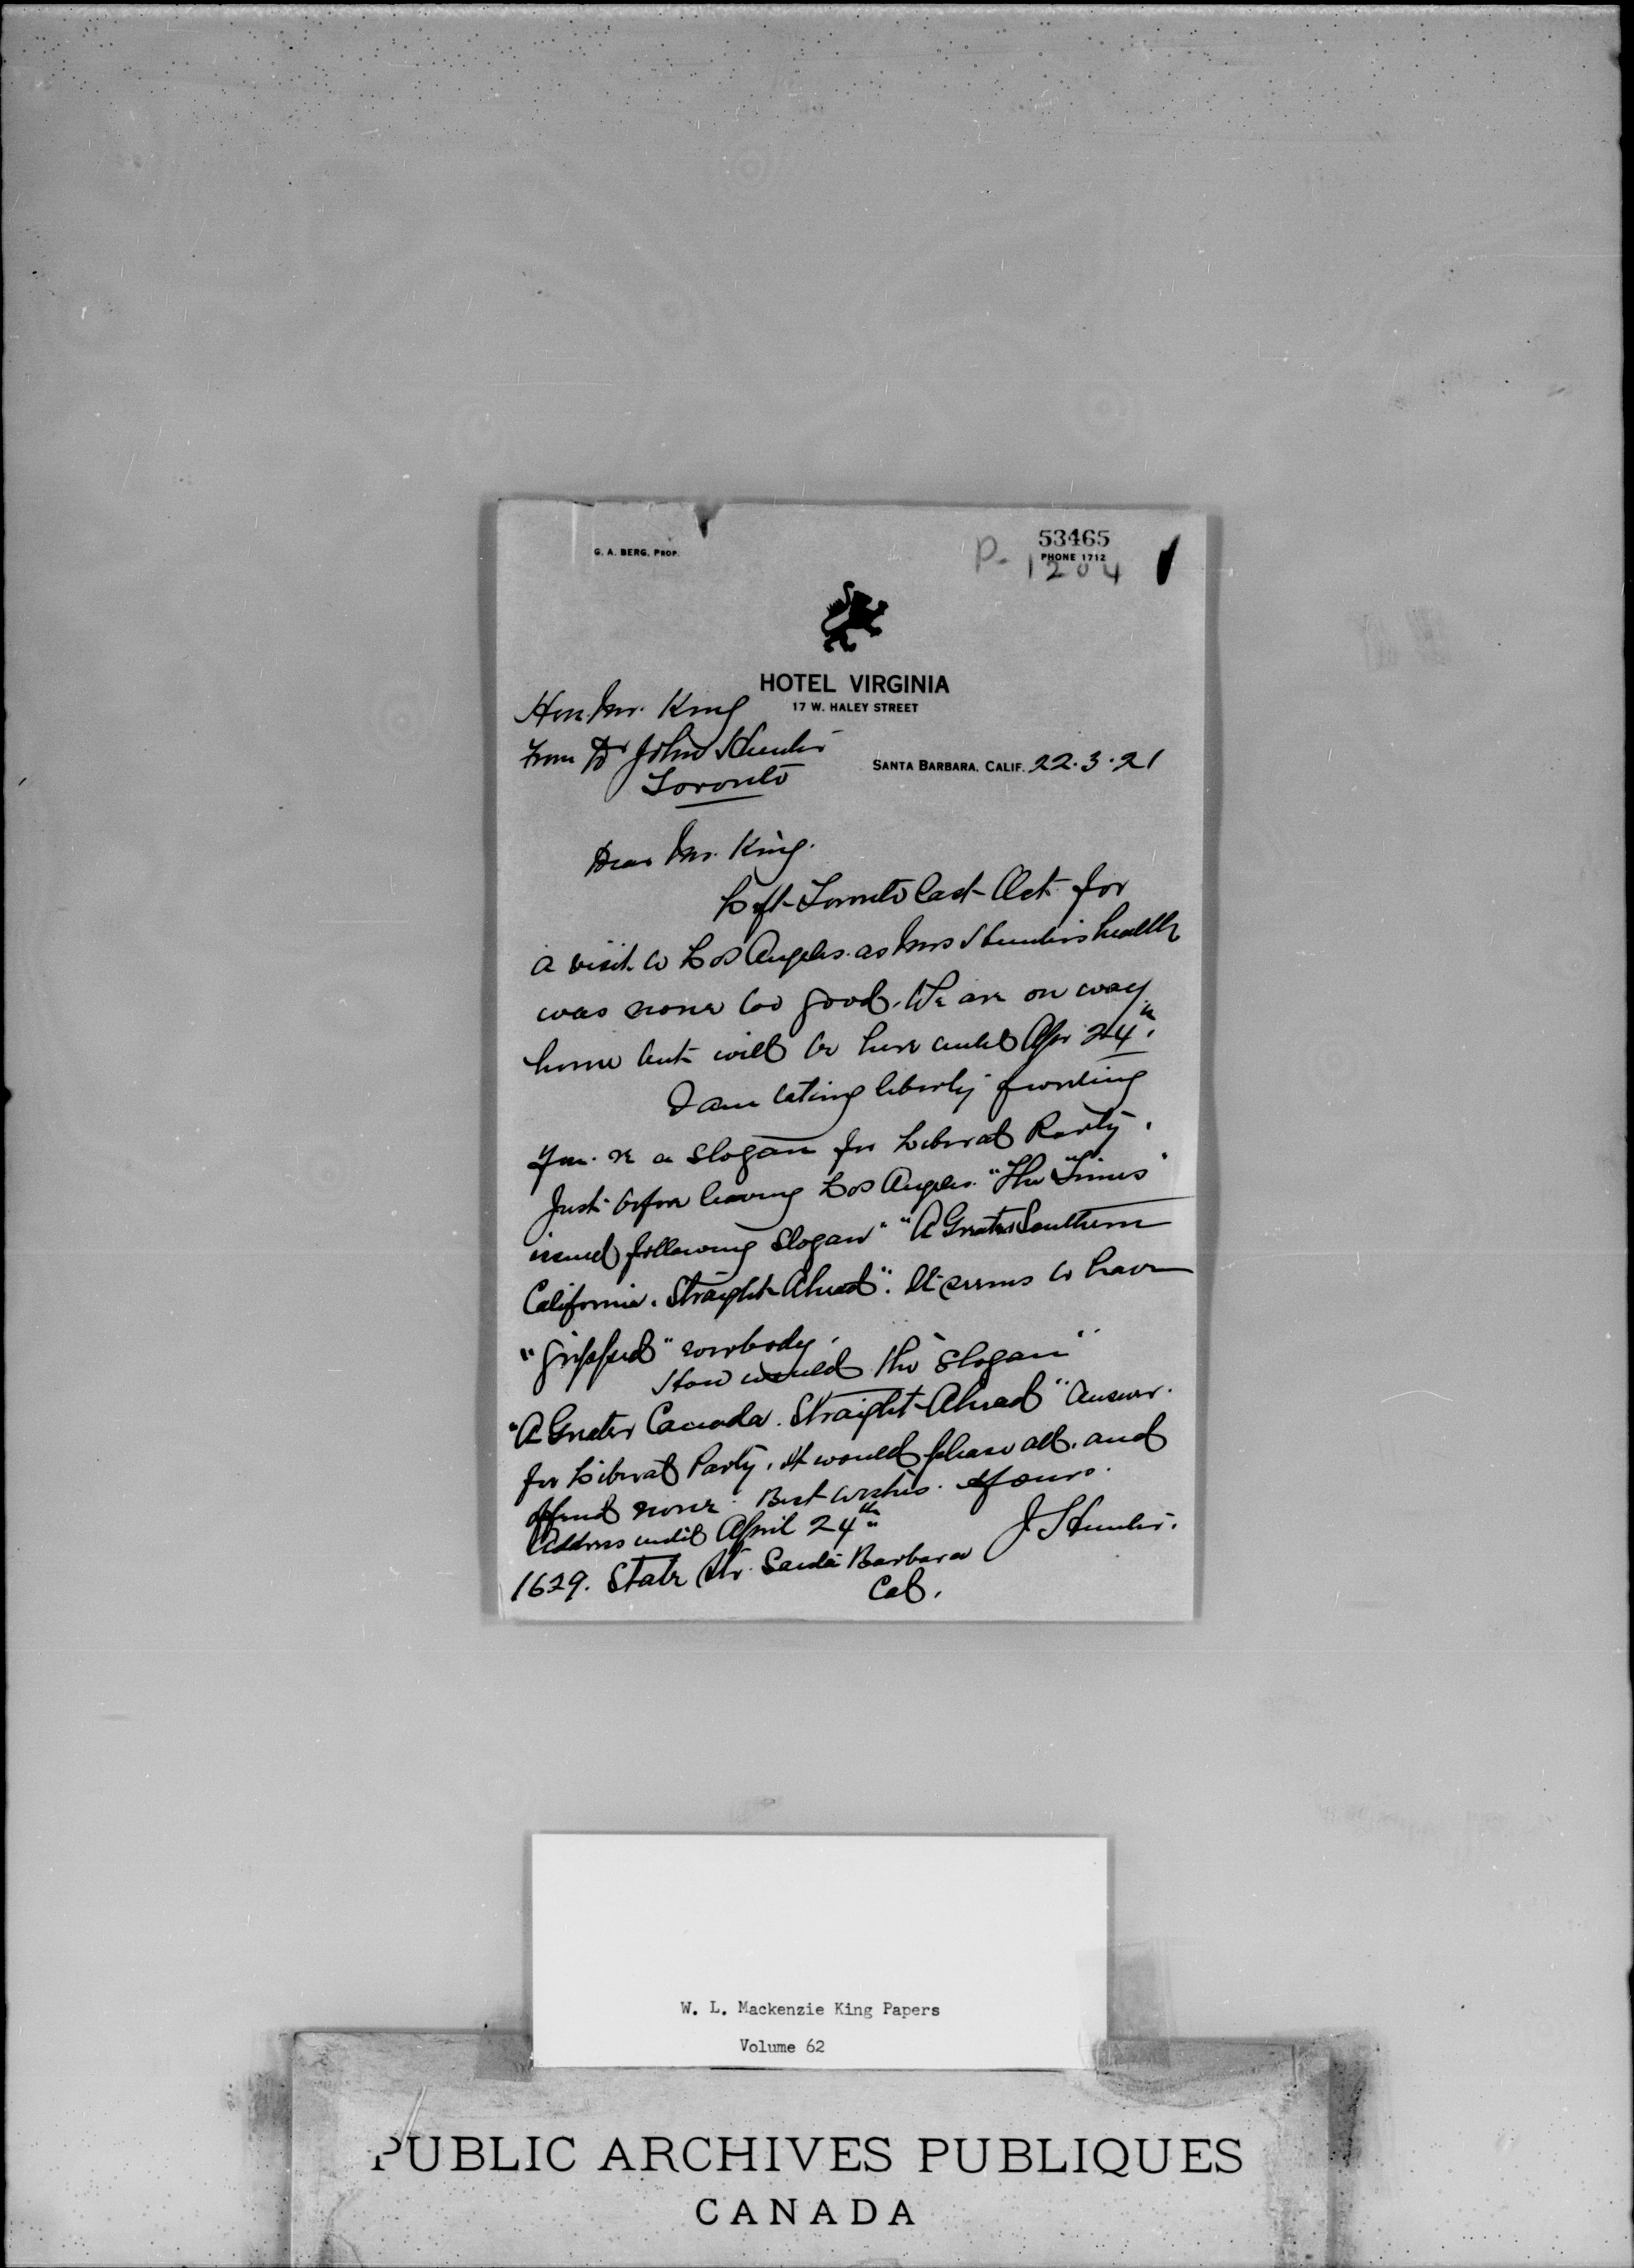 53465
G. A. BERG, PROP.
PHONE 1712
P. 1204
HOTEL VIRGINIA
17 W. HALEY STREET
Hon. Mr. King
From Dr John Hunter
Toronto
SANTA BARBARA, CALIF. 22.3.21
Dear Mr. King.
Left Toronto last Oct. for
a visit to Los Angeles. as Mrs Hunter's health
was none too good. We are on way
home but will be here until Apr 24th.
I am taking liberty of writing
you. re a slogan for Liberal Party.
Just before leaving Los Angeles. "The "Times"
issued following Slogan" "A Greater Southern
California. Straight Ahead". It seems to have
"gripped" everybody.
How would the "slogan"
"A Greater Canada. Straight Ahead" answer.
for Liberal Party. It would please all. and
offend none. Best wishes. Yours.
Address until April 24th
J Hunter.
1629. State Str. Santa Barbara
Cal.
W. L. Mackenzie King Papers
Volume 62
PUBLIC ARCHIVES PUBLIQUES
CANADA